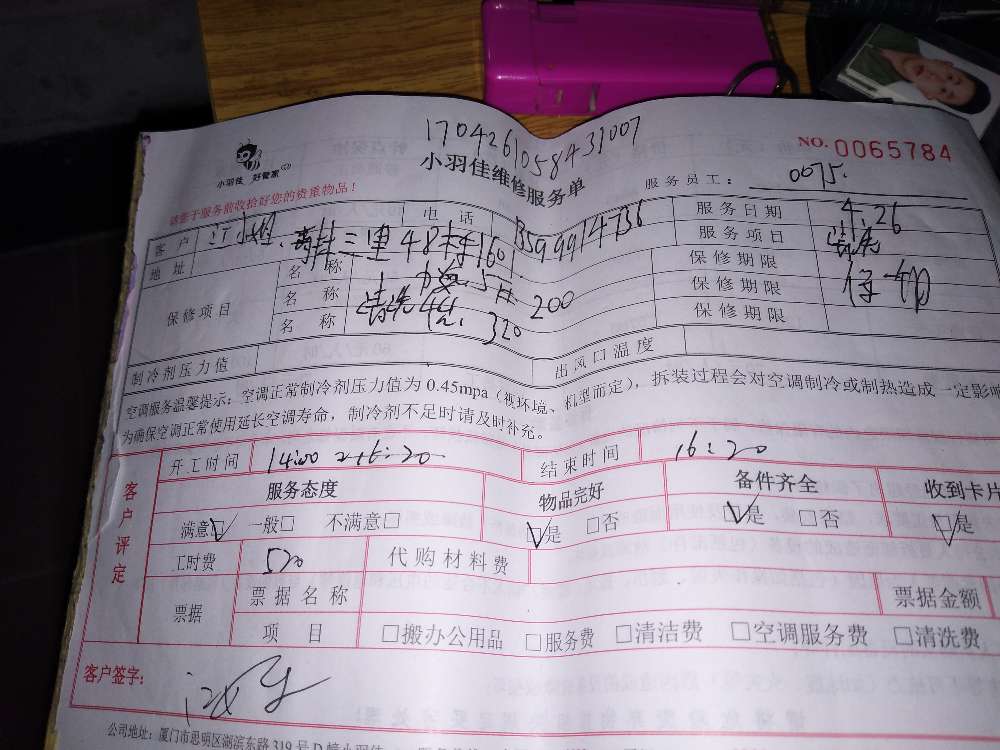 170426105843007
NO. 0065784
小羽佳 好管家
小羽佳维修服务单
服务员工: 0075.
请您于服务前收拾好您的贵重物品!
客户 江小姐 电话 13599914736 服务日期 4.26
地址 三里48 160 服务项目 清洗
保修项目 名称 保修期限
名称 200 保修期限
名称 清洗 320 保修期限
制冷剂压力值 出风口温度
空调服务温馨提示:空调正常制冷剂压力值为0.45mpa(视环境、机型而定),拆装过程会对空调制冷或制热造成一定影响
为确保空调正常使用延长空调寿命,制冷剂不足时请及时补充。
客户评定
开工时间 14:00 结束时间 16:20
服务态度 物品完好 备件齐全 收到卡片
满意☑ 一般□ 不满意□ ☑是 □否 ☑是 □否 ☑是
工时费 520 代购材料费
票据 票据名称 票据金额
项目 □搬办公用品 □服务费 □清洁费 □空调服务费 □清洗费
客户签字:
公司地址:厦门市思明区湖滨东路319号D幢小羽佳